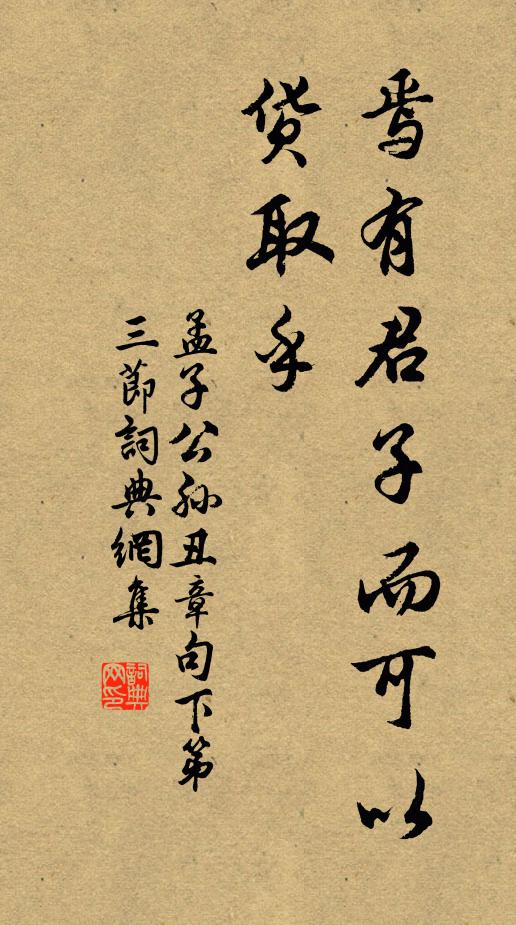 焉有君子而可以
货取乎
孟子公孙丑章句下第
三節詞典網集
詞典
网印